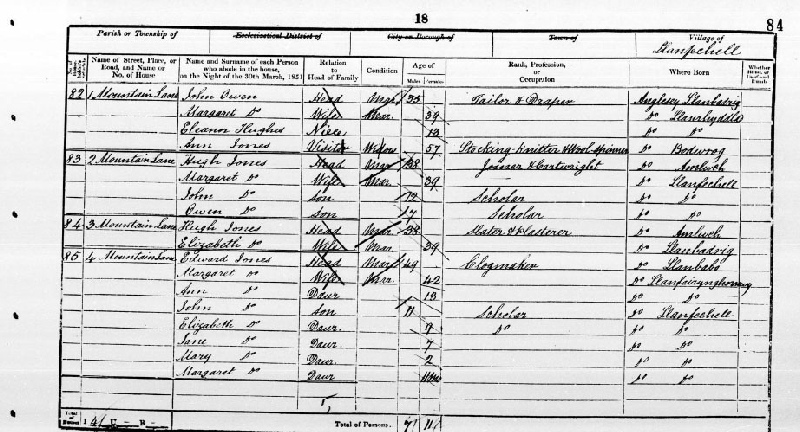 18
84
Parish or Township of
Ecclesiastical District of
City or Borough of
Town of
Village of
Llanfechell
Name of Street, Place, or Road, and Name or No. of House
Name and Surname of each Person who abode in the house, on the Night of the 30th March, 1851
Relation to Head of Family
Condition
Age of
Males Females
Rank, Profession, or Occupation
Where Born
82 1 Mountain Lane John Owen Head Mar 35 Tailor & Draper Anglesey Llanbadrig
Margaret Do Wife Mar 39 Do
Eleanor Hughes Niece 13 Do Do
Ann Jones Visitor Widow 57 Stocking knitter & Wool Spinner Do Bodwrog
83 2 Mountain Lane Hugh Jones Head Mar 38 Joiner & Cartwright Do Amlwch
Margaret Do Wife Mar 39 Do Llanfechell
John Do Son Scholar Do Do
Owen Do Son Scholar Do Do
84 3 Mountain Lane Hugh Jones Head Mar Slater & Plasterer Do Amlwch
Elizabeth Do Wife Mar 39 Do Llanbadrig
85 4 Mountain Lane Edward Jones Head Mar 49 Clogmaker Do Llanbabo
Margaret Do Wife Mar 42 Do
Ann Do Daur 13 Do Do
John Do Son 11 Scholar Do Llanfechell
Elizabeth Do Daur 9 Do Do Do
Jane Do Daur 7 Do Do
Mary Do Daur 2 Do Do
Margaret Do Daur Do Do
Total of Persons 7 11